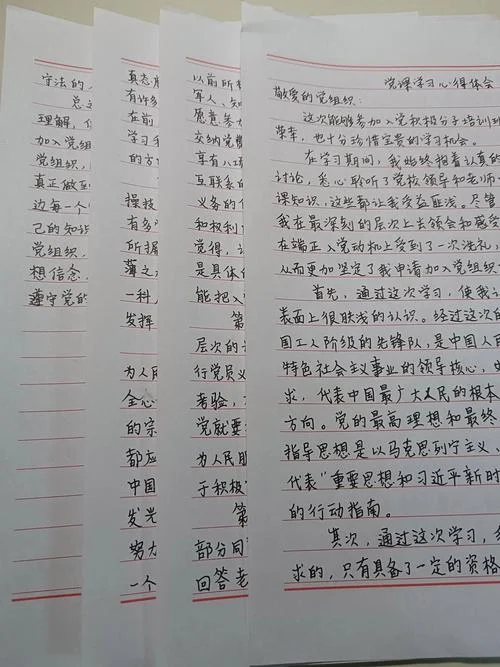 党课学习心得体会
敬爱的党组织：
这次能够参加入党积极分子培训班
荣幸，也十分珍惜宝贵的学习机会。
在学习期间，我始终抱着认真的
讨论，悉心聆听了党校领导和老师
课知识，这些都让我受益匪浅。尽管
我在最深刻的层次上去领会和感受
在端正入党动机上受到了一次洗礼，
从而更加坚定了我申请加入党组织
首先，通过这次学习，使我
表面上很肤浅的认识。经过这次的
国工人阶级的先锋队，是中国人民
特色社会主义事业的领导核心，
求，代表中国最广大人民的根本
方向。党的最高理想和最终
指导思想是以马克思列宁主义、
代表"重要思想和习近平新时
的行动指南。
其次，通过这次学习，
求的，只有具备了一定的资格
以前所
军人、知
愿意
交纳党费
享有八项
互联系的
义务的
和权利
觉得，
是具体
能把入
第
层次的
行党员义
考验，
党就要
为人民
于积极
第
部分同
回答老
真态
有许多
在前
学习
的方
操技
有多
所据
薄之
一科
发挥
为人民
全心
的宗
都应
中国
发光
努力
一个
守法的
总之
理解，
加入党组
党组织，
真正做
边每一个
己的知识
党组织，
想信念，
遵守党的